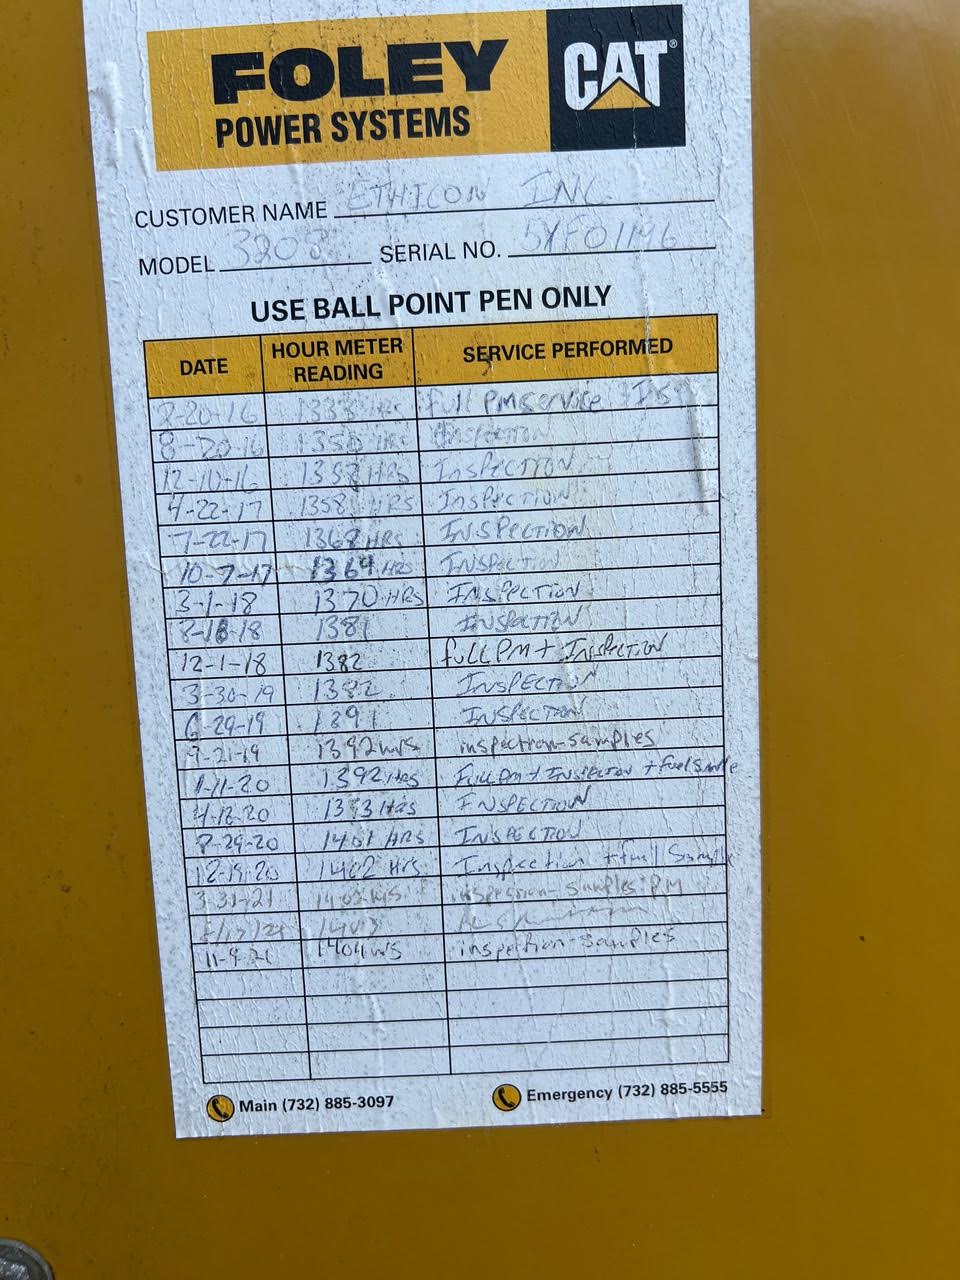 FOLEY CAT®
POWER SYSTEMS
CUSTOMER NAME ETHICON INC.
MODEL 3208 SERIAL NO. 5YF01196
USE BALL POINT PEN ONLY
DATE HOUR METER READING SERVICE PERFORMED
2-20-16 HRS full PM service
8-20-16 1350 HRS Inspection
12-10-16 1358 HRS INSPECTION
4-22-17 1358 HRS INSPECTION
7-22-17 1368 HRS INSPECTION
10-7-17 1369 HRS INSPECTION
3-1-18 1370 HRS INSPECTION
8-18-18 1381 INSPECTION
12-1-18 1382 full PM + INSPECTION
3-30-19 1382 INSPECTION
6-29-19 1391 INSPECTION
9-21-19 1392 inspection-samples
1-11-20 1392 Hrs Full PM + INSPECTION + fuel Sample
4-18-20 1393 Hrs INSPECTION
8-29-20 1401 HRS INSPECTION
12-19-20 1402 Hrs Inspection + fuel Sample
3-31-21 inspection-samples PM
1404 inspection-samples
Main (732) 885-3097 Emergency (732) 885-5555